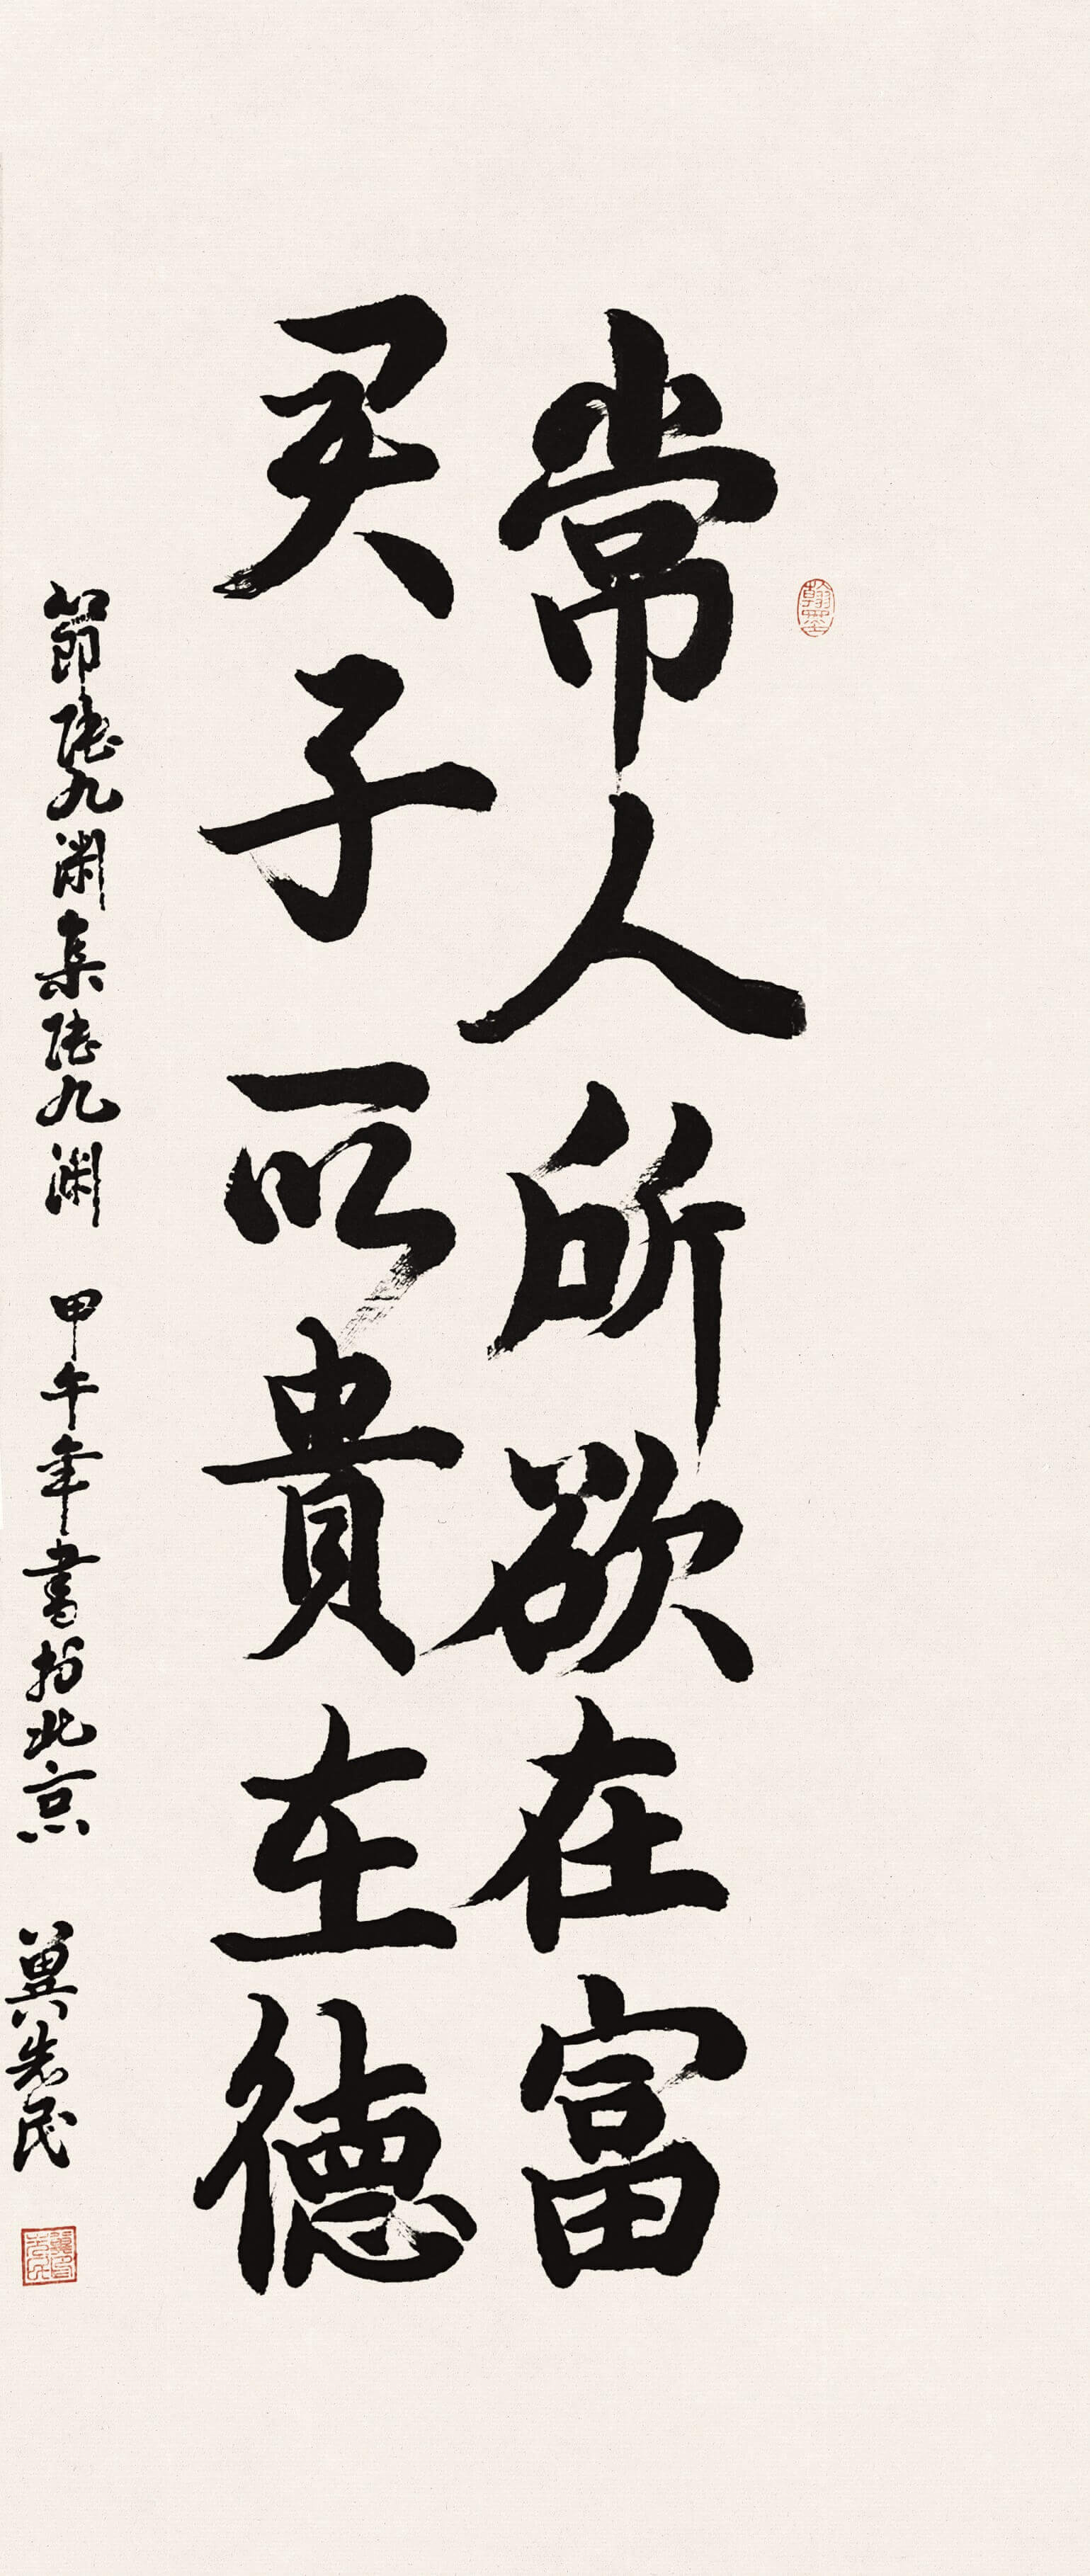 翰墨
常人所欲在富
君子所貴在德
節陸九渊集陸九渊 甲午年書於北京 冀先民